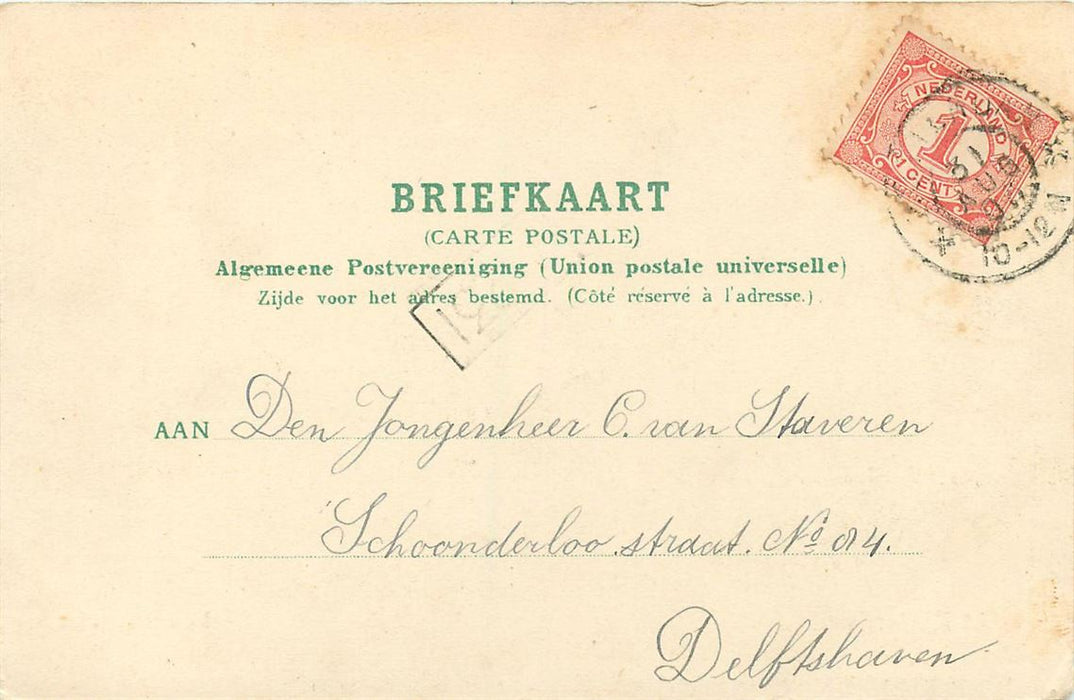 NEDERLAND
1
1 CENT
10-12 N
BRIEFKAART
(CARTE POSTALE)
Algemeene Postvereeniging (Union postale universelle)
Zijde voor het adres bestemd. (Côté réservé à l'adresse.)
AAN Den Jongenheer C. van Staveren
Schoonderloo straat. No 84.
Delftshaven